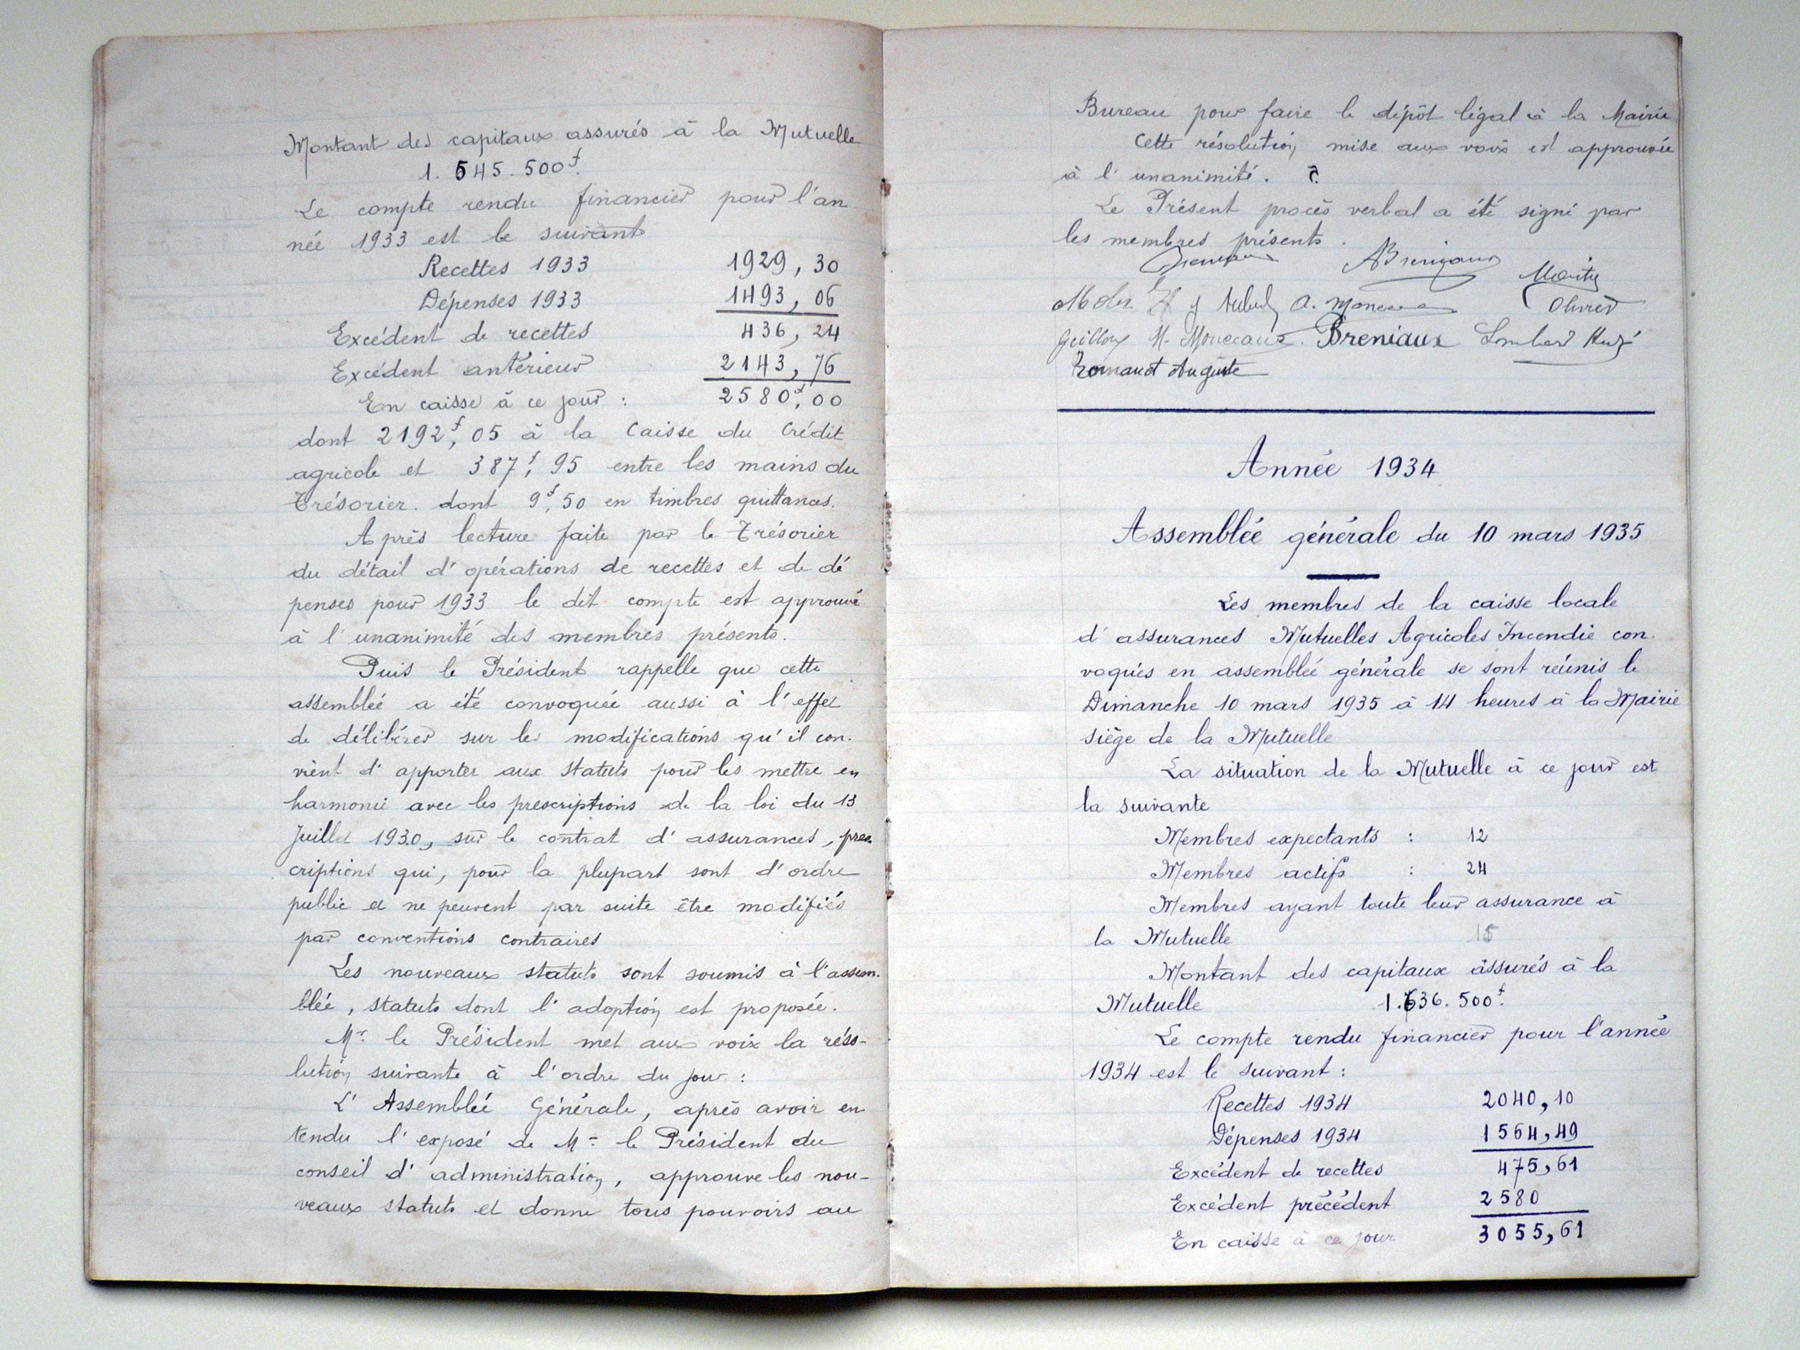 Montant des capitaux assurés à la Mutuelle
1.645.500f.
Le compte rendu financier pour l'an
née 1933 est le suivant
Recettes 1933 1929,30
Dépenses 1933 1493,06
Excédent de recettes 436,24
Excédent antérieur 2143,76
En caisse à ce jour : 2580f,00
dont 2192f,05 à la Caisse du Crédit
agricole et 387f,95 entre les mains du
Trésorier. dont 9f,50 en timbres quittances.
Après lecture faite par le Trésorier
du détail d'opérations de recettes et de dé
penses pour 1933 le dit compte est approuvé
à l'unanimité des membres présents.
Puis le Président rappelle que cette
assemblée a été convoquée aussi à l'effet
de délibérer sur les modifications qu'il con-
vient d'apporter aux statuts pour les mettre en
harmonie avec les prescriptions de la loi du 13
Juillet 1930, sur le contrat d'assurances, pres-
criptions qui, pour la plupart sont d'ordre
public et ne peuvent par suite être modifiés
par conventions contraires
Les nouveaux statuts sont soumis à l'assem-
blée, statuts dont l'adoption est proposée.
Mr le Président met aux voix la réso-
lution suivante à l'ordre du jour :
L'Assemblée Générale, après avoir en
tendu l'exposé de Mr le Président du
conseil d'administration, approuve les nou-
veaux statuts et donne tous pouvoirs au
Bureau pour faire le dépôt légal à la Mairie
Cette résolution mise aux voix est approuvée
à l'unanimité.
Le Présent procès verbal a été signé par
les membres présents.
ABreniaux
Olivier
Guillou M. Mouceaux Breniaux Lombard
Auguste
Année 1934
Assemblée générale du 10 mars 1935
Les membres de la caisse locale
d'assurances Mutuelles Agricoles Incendie con-
voqués en assemblée générale se sont réunis le
Dimanche 10 mars 1935 à 14 heures à la Mairie
siège de la Mutuelle
La situation de la Mutuelle à ce jour est
la suivante
Membres expectants : 12
Membres actifs : 24
Membres ayant toute leur assurance à
la Mutuelle 15
Montant des capitaux assurés à la
Mutuelle 1.636.500f.
Le compte rendu financier pour l'année
1934 est le suivant :
Recettes 1934 2040,10
Dépenses 1934 1564,49
Excédent de recettes 475,61
Excédent précédent 2580
En caisse à ce jour 3055,61